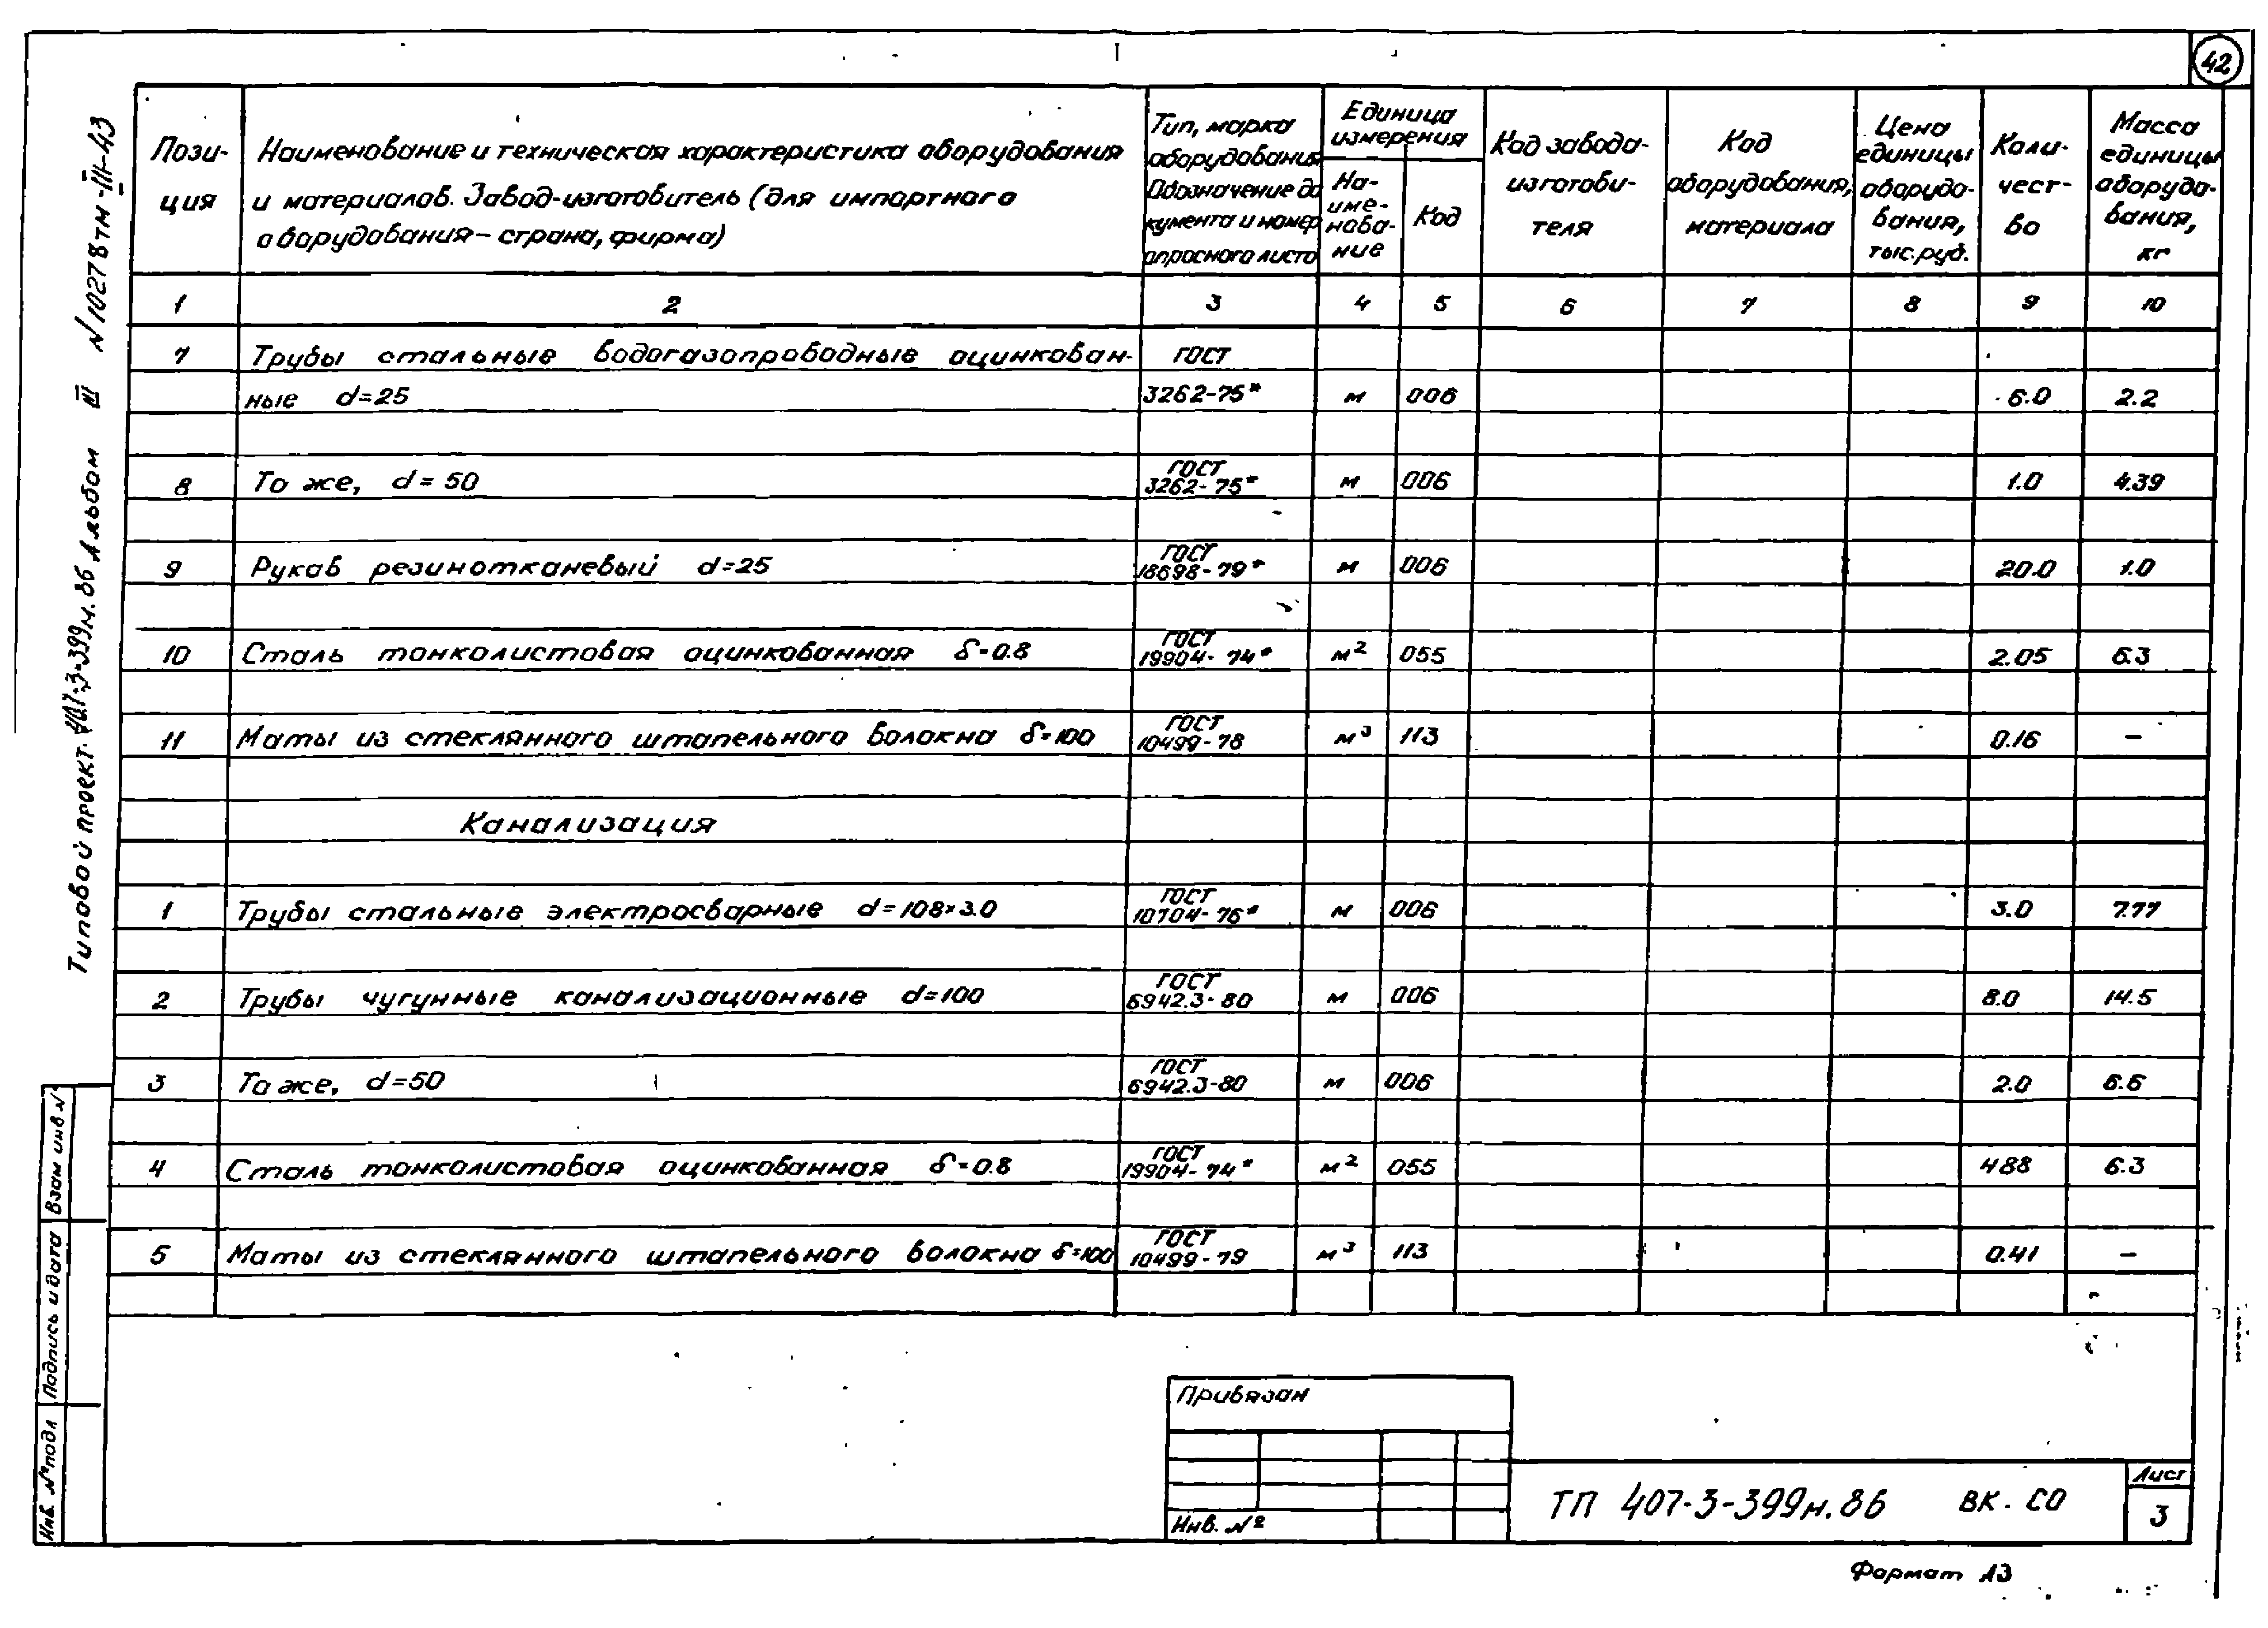 42
Пози-
ция
Наименование и техническая характеристика оборудования
и материалов. Завод-изготовитель (для импортного
оборудования – страна, фирма)
Тип, марка
оборудования
Обозначение до
кумента и номер
опросного листа
Единица
измерения
На-
име-
нова-
ние
Код
Код завода-
изготови-
теля
Код
оборудования,
материала
Цена
единицы
оборудо-
вания,
тыс.руб.
Коли-
чест-
во
Масса
единицы
оборудо-
вания,
кг
1 2 3 4 5 6 7 8 9 10
7 Трубы стальные водогазопроводные оцинкован- ГОСТ
ные d=25 3262-75* м 006 6.0 2.2
ГОСТ
8 То же, d=50 3262-75* м 006 1.0 4.39
ГОСТ
9 Рукав резинотканевый d=25 18698-79* м 006 20.0 1.0
ГОСТ
10 Сталь тонколистовая оцинкованная δ=0.8 19904-74* м² 055 2.05 6.3
ГОСТ
11 Маты из стеклянного штапельного волокна δ=100 10499-78 м³ 113 0.16 –
Канализация
ГОСТ
1 Трубы стальные электросварные d=108×3.0 10704-76* м 006 3.0 7.77
ГОСТ
2 Трубы чугунные канализационные d=100 6942.3-80 м 006 8.0 14.5
ГОСТ
3 То же, d=50 6942.3-80 м 006 2.0 6.6
ГОСТ
4 Сталь тонколистовая оцинкованная δ=0.8 19904-74* м² 055 488 6.3
ГОСТ
5 Маты из стеклянного штапельного волокна δ=100 10499-79 м³ 113 0.41 –
Типовой проект 407-3-399м.86 Альбом III N10278тм-III-43
Взам инв N
Подпись и дата
Инв. № подл
Привязан
Инв. №
ТП 407-3-399м.86 ВК. СО
Лист
3
Формат А3